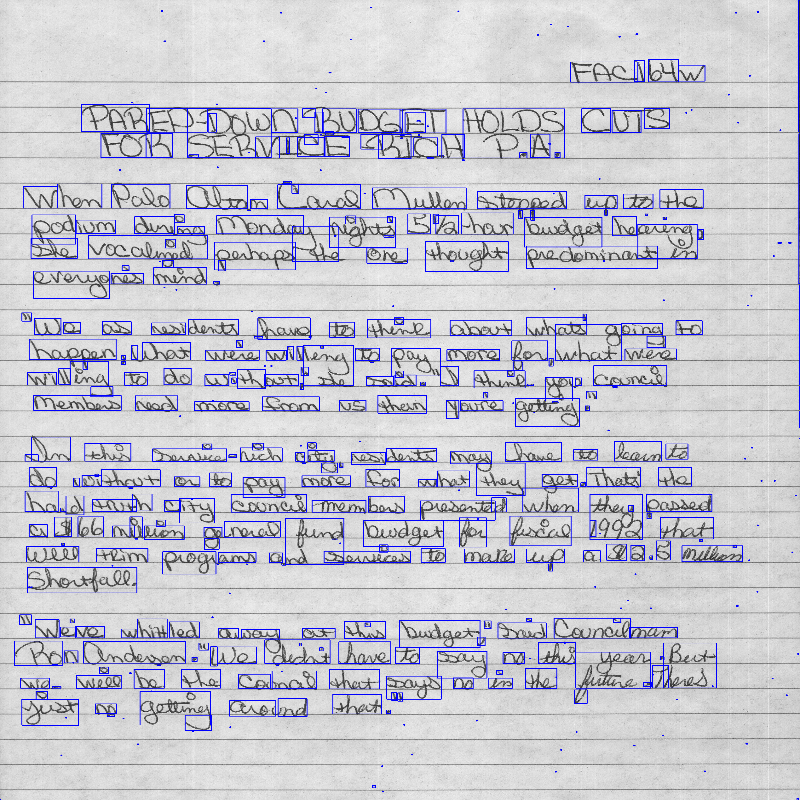 FACN64W
PARED-DOWN BUDGET HOLDS CUTS
FOR SERVICE-RICH P.A.
When Palo Altan Carol Mullen stepped up to the
podium during Monday nights 5 1/2-hour budget hearing,
she vocalized perhaps the one thought predominant in
everyones mind.
"We as residents have to think about whats going to
happen. What were willing to pay more for what were
willing to do without. she said. "I think you council
members need more from us than you're getting."
In this service-rich city residents may have to learn to
do without or to pay more for what they get. That's the
hard truth city council members presented when they passed
a $166 million general fund budget for fiscal 1992 that
will trim programs and services to make up a $2.5 million
Shortfall.
"We've whittled away at this budget," said Councilman
Ron Andersen. "We didn't have to say no this year. But
we will be the Council that says no in the future. There's
just no getting around that."